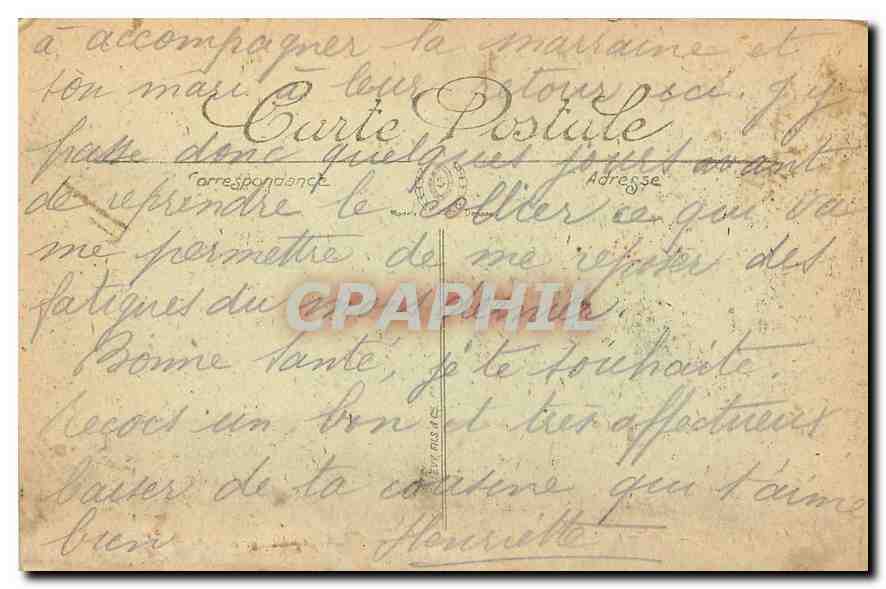 à accompagner la marraine et
son mari à leur retour ici. J'y
Carte Postale
passe donc quelques jours avant
Correspondance
Adresse
de reprendre le collier ce qui va
me permettre de me reposer des
fatigues du mois dernier.
CPAPHIL
Bonne Santé, je te souhaite.
Reçois un bon et très affectueux
LEVY FILS & Cie
baiser de ta cousine qui t'aime
bien Henriette